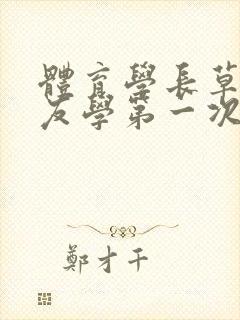 體育學長草
友學第一次
鄭才千